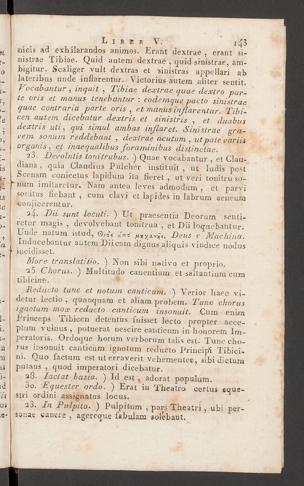 LIBER V. 143
nicis ad exhilarandos animos. Erant dextrae, erant si-
nistrae Tibiae. Quid autem dextrae, quid sinistrae, am-
bigitur. Scaliger vult dextras et sinistras appellari ab
lateribus unde inflarentur. Victorius autem aliter sentit.
Vocabantur, inquit, Tibiae dextrae quae dextro par-
te oris et manus tenebantur: eodemque pacto sinistrae
quae contraria parte oris, et manus inflarentur. Tibi-
cen autem dicebatur dextris et sinistris, et duabus
dextris uti, qui simul ambas inflaret. Sinistrae gra-
vem sonum reddebant, dextrae acutum, ut pote variis
organis, et inaequalibus foraminibus distinctae.
23. Devolutis tonitrubus.) Quae vocabantur, et Clau-
diana, quia Claudius Pulcher instituit, ut ludis post
Scenam coniectus lapidum ita fieret, ut veri tonitru so-
num imitaretur. Nam antea leves admodum, et parvi
sonitus fiebant, cum clavi et lapides in labrum aeneum
conjicerentur.
24. Dii sunt locuti.) Ut praesentia Deorum senti-
retur magis, devolvebant tonitrua, et Dii loquebantur.
Unde natum istud, Θεὸς ἀπὸ μηχανῆς, Deus e Machina.
Inducebantur autem Dii cum dignus aliquis vindice nodus
incidisset.
More translatitio.) Non sibi nativo et proprio.
25 Chorus.) Multitudo canentium et saltantium cum
tibicine.
Reducto tunc et notum canticum.) Verior haec vi-
detur lectio, quamquam et aliam probem. Tunc chorus
ignotum mox reducto canticum insonuit. Cum enim
Princeps Tibicen detentus fuisset lecto propter acce-
ptum vulnus, potuerat nescire canticum in honorem Im-
peratoris. Ordoque horum verborum talis est. Tunc cho-
rus insonuit canticum ignotum reducto Principi Tibici-
ni. Quo factum est ut erraverit vehementer, sibi dictum
putans, quod imperatori dicebatur.
28. Iactat basia.) Id est, adorat populum.
30. Equester ordo.) Erat in Theatro certus eque-
stri ordini assignatus locus.
23. In Pulpito.) Pulpitum, pars Theatri, ubi per-
sonae canere, agereque fabulam solebant.